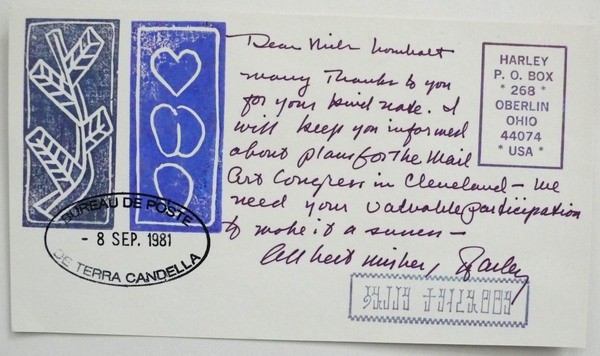 Dear Niels Lomholt
many Thanks to you
for your kind note. I
will keep you informed
about plans for The Mail
Art Congress in Cleveland - we
need your valuable participation
to make it a success -
All best wishes, Harley
HARLEY
P. O. BOX
* 268 *
OBERLIN
OHIO
44074
* USA *
BUREAU DE POSTE
- 8 SEP. 1981
DE TERRA CANDELLA